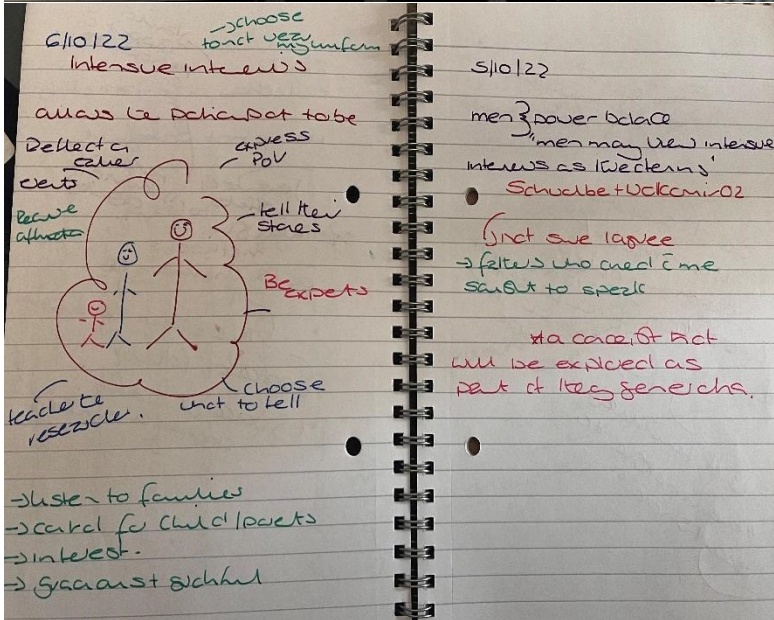 6/10/22
→choose
to not wear
my uniform
Intensive interviews
allows the participant to be
Reflect on
earlier
events
express
POV
tell their
stories
Receive
Be
experts
choose
what to tell
teach the
researcher.
→listen to families
→cared for child/parents
→interest.
→gracious + grateful
5/10/22
men } power balance
"men may view intensive
interviews as threatening'
Schwalbe + Wolkomir 02
not sure I agree
→ fathers who cared c me
sought to speak
*a concept that
will be explored as
part of theory generation.